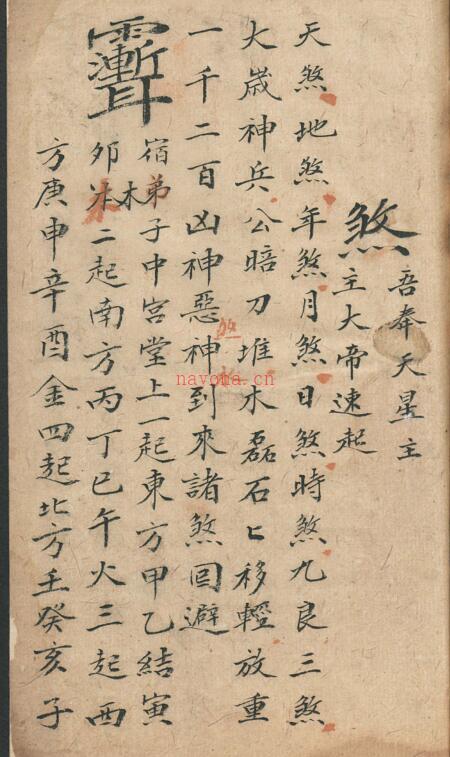 吾奉天星主
煞
主大帝速起
天煞地煞年煞月煞日煞時煞九良三煞
大歲神兵公暗刀堆木磊石匕移輕放重
一千二百凶神惡神到來諸煞囬避
宿弟子中宮堂上一起東方甲乙結寅
卯木二起南方丙丁巳午火三起西
方庚申辛酉金四起北方壬癸亥子
nayona.cn